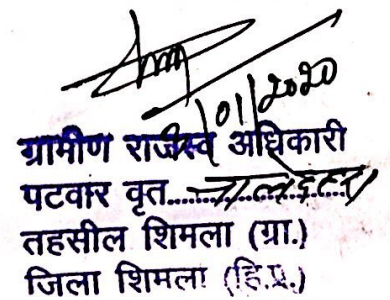 /01/2020
ग्रामीण राजस्व अधिकारी
पटवार वृत...............
तहसील शिमला (ग्रा.)
जिला शिमला (हि.प्र.)